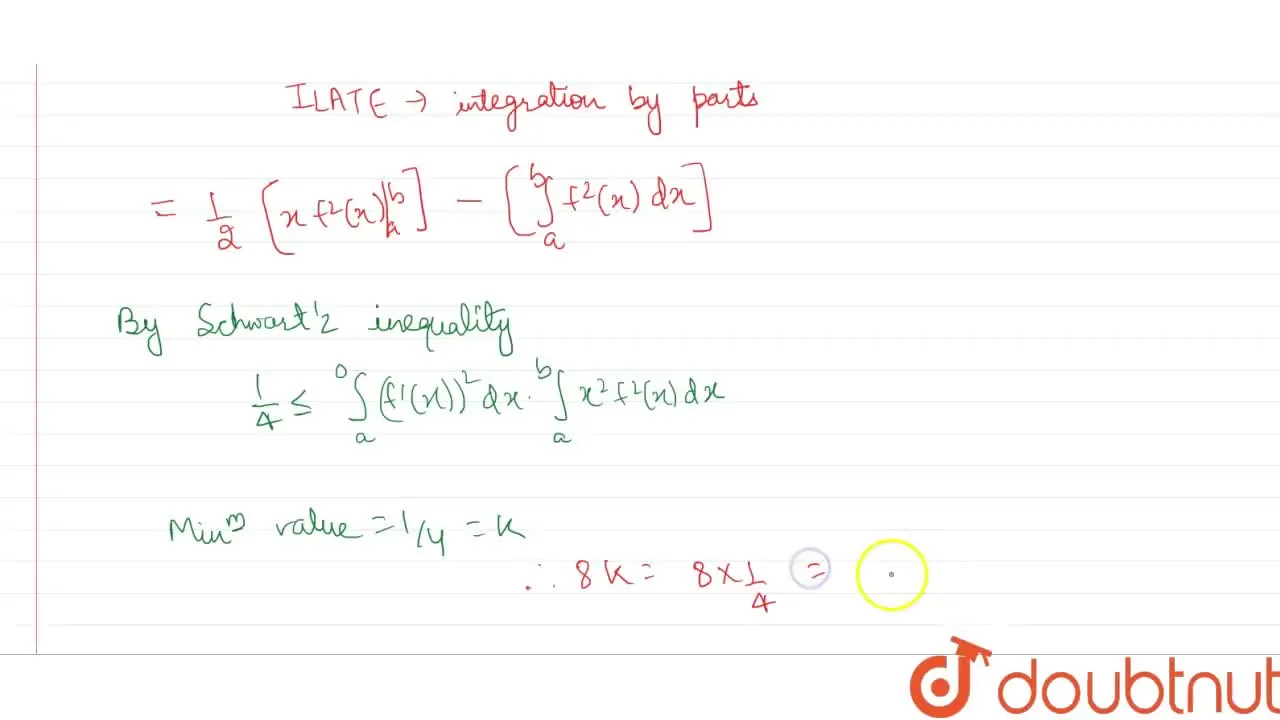 ILATE → integration by parts
= 1/2 [x f²(x)|ₐᵇ] - [∫ₐᵇ f²(x) dx]
By Schwart'z inequality
1/4 ≤ ∫ₐ⁰ (f'(x))² dx · ∫ₐᵇ x² f²(x) dx
Minᵐ value = 1/4 = K
∴ 8K = 8 × 1/4 =
doubtnut